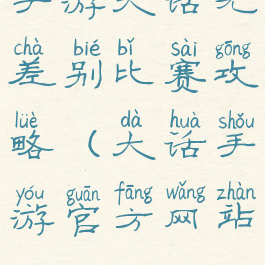 手游大话无
chà bié bǐ sài gōng
差别比赛攻
lüè dà huà shǒu
略（大话手
yóu guān fāng wǎng zhàn
游官方网站